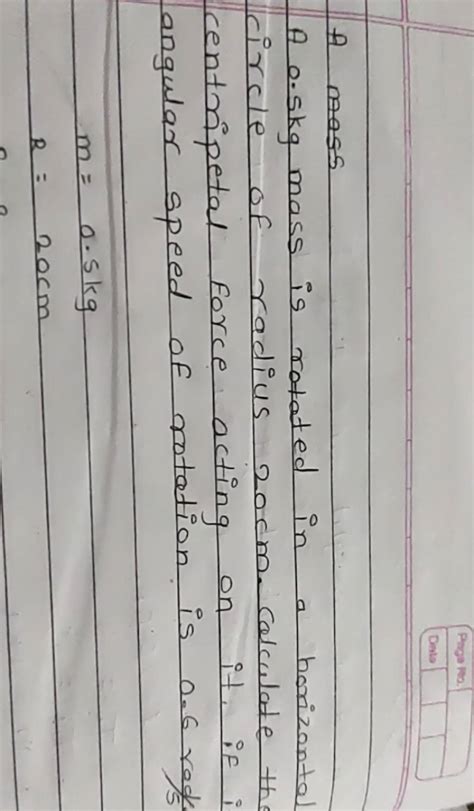 Page No.
Date
A mass
A 0.5kg mass is rotated in a horizontal
circle of radius 20cm. calculate the
centripetal force acting on it, if i
angular speed of rotation is 0.6 rad/s
m = 0.5kg
R = 20cm